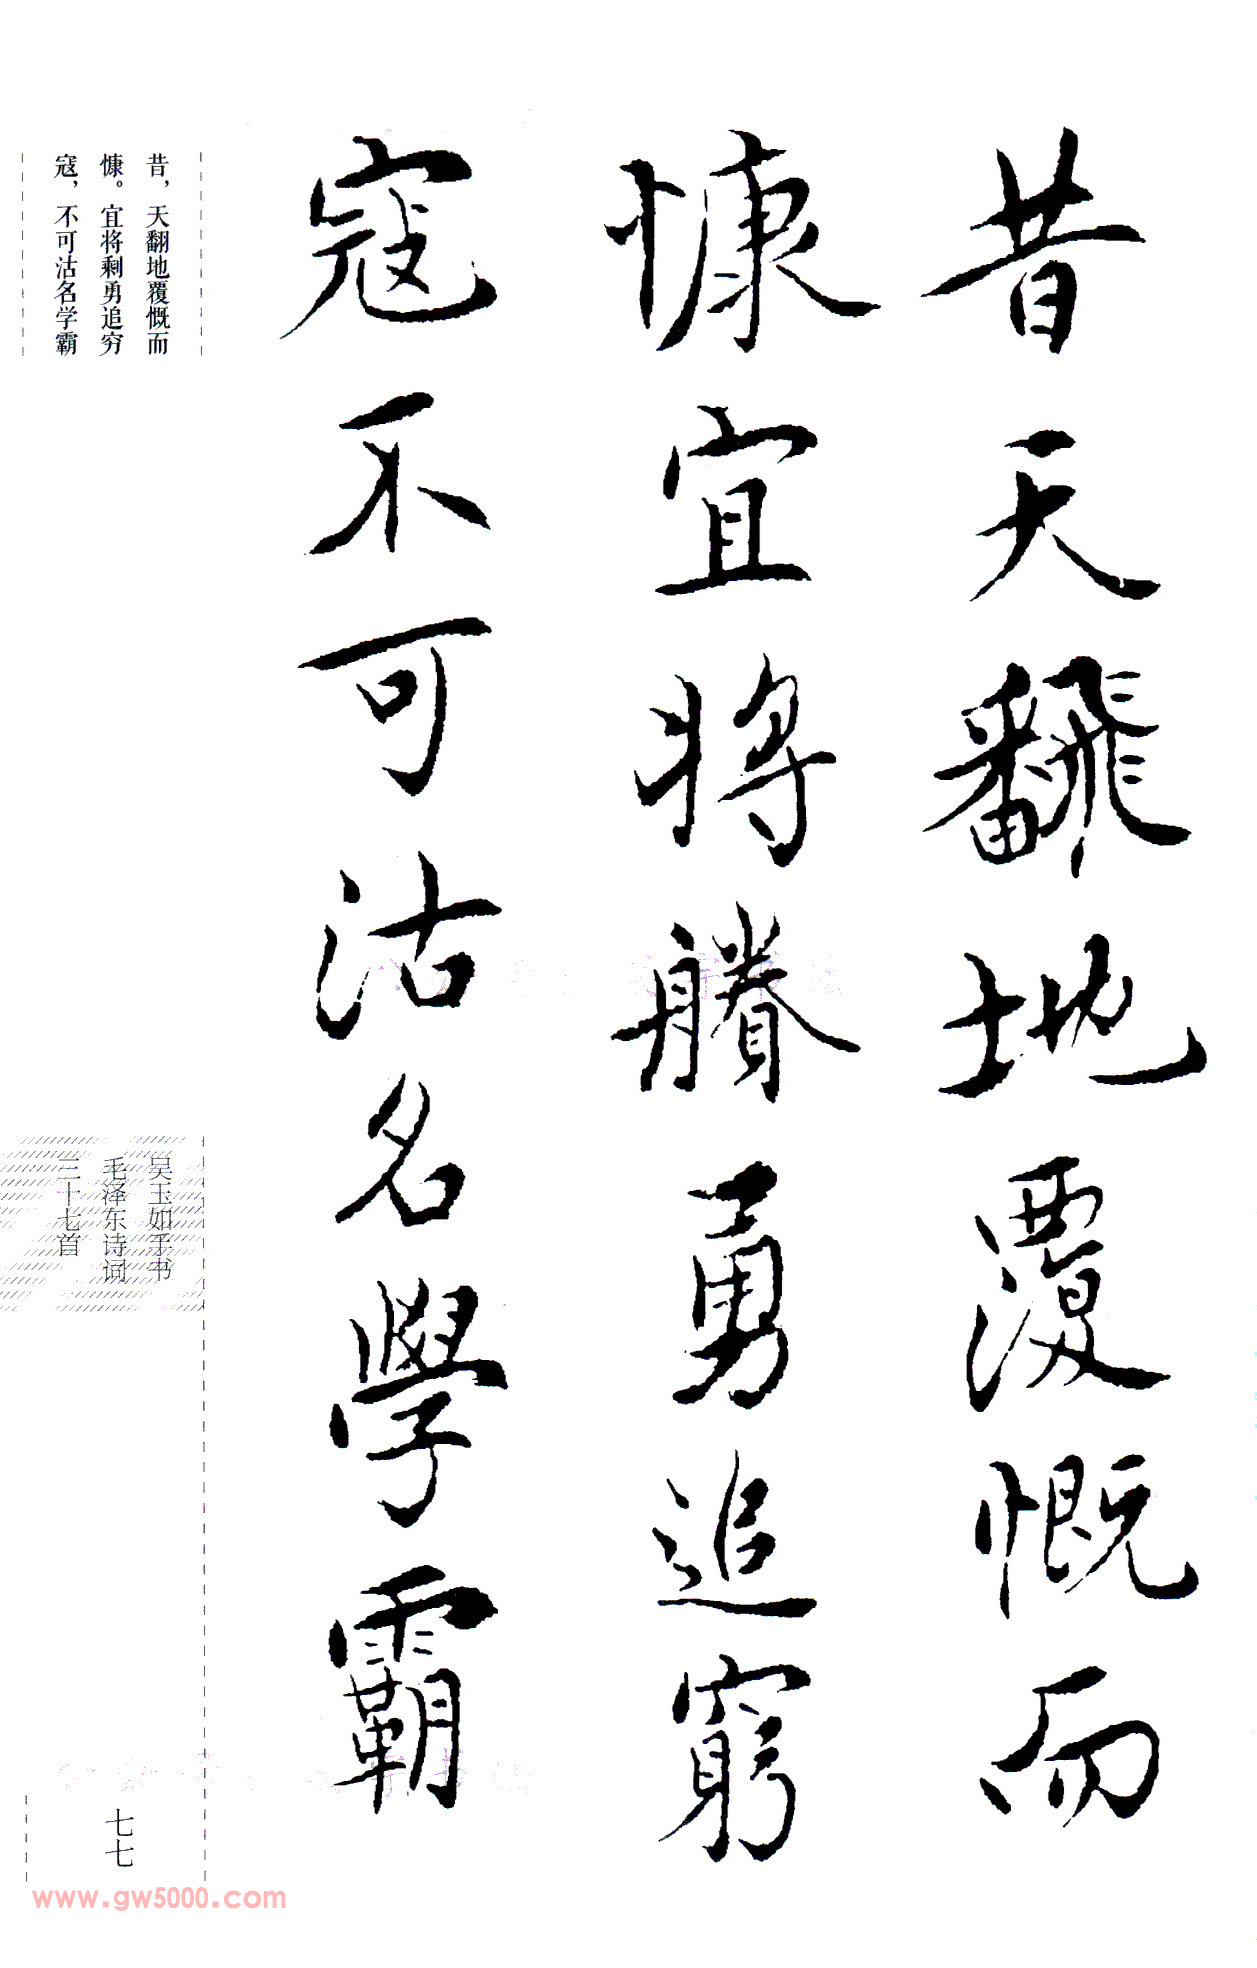 昔天飜地覆慨而
慷宜将賸勇追窮
寇不可沽名學霸
昔，天翻地覆慨而
慷。宜将剩勇追穷
寇，不可沽名学霸
吴玉如手书
毛泽东诗词
三十七首
七七
www.gw5000.com